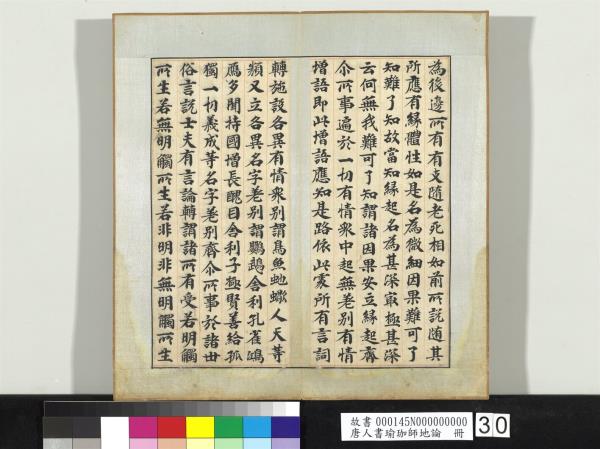 為後邊所有有支随老死相如前所說随其
所應有緣體性如是名為微細因果難可了
知難了知故當知緣起名為甚深最極甚深
云何無我難可了知謂諸因果安立緣起齊
尒所事遍於一切有情衆中起無差別有情
増語即此増語應知是路依此處所有言詞
轉施設各異有情衆別謂鳥魚虵蠍人天等
類又立各異名字差別謂鸚鵡舎利孔雀鴻
鴈多聞持國増長醜目舎利子極賢善給孤
獨一切義成等名字差別齊尒所事於諸世
俗言說士夫有言論轉謂諸所有受若明觸
所生若無明觸所生若非明非無明觸所生
故書 000145N000000000
唐人書瑜珈師地論 冊
30